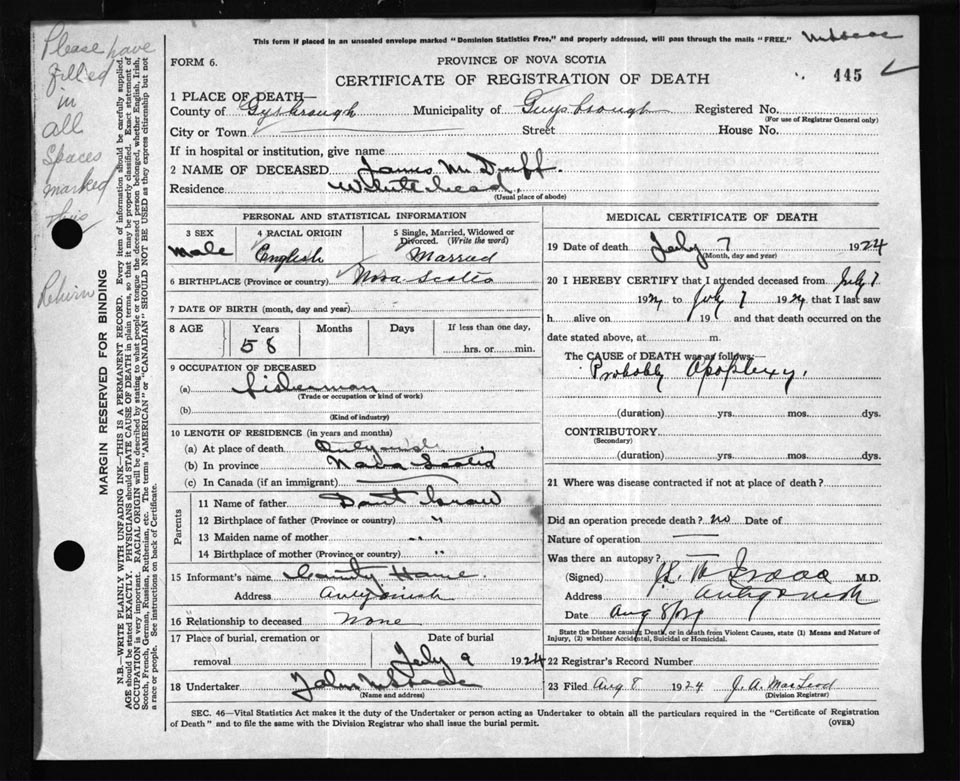 This form if placed in an unsealed envelope marked "Dominion Statistics Free," and properly addressed, will pass through the mails "FREE."
FORM 6.
PROVINCE OF NOVA SCOTIA
CERTIFICATE OF REGISTRATION OF DEATH
445
Please have
filled
in
all
Spaces
marked
this
Return
MARGIN RESERVED FOR BINDING
N.B.—WRITE PLAINLY WITH UNFADING INK—THIS IS A PERMANENT RECORD. Every item of information should be carefully supplied.
AGE should be stated EXACTLY. PHYSICIANS should STATE CAUSE OF DEATH in plain terms, so that it may be properly classified. Exact statement of
OCCUPATION is very important. RACIAL ORIGIN will be described by stating to what people or tongue the deceased person belonged, whether English, Irish,
Scotch, French, German, Russian, Ruthenian, etc. The terms "AMERICAN" or "CANADIAN" SHOULD NOT BE USED as they express citizenship but not
a race or people. See instructions on back of Certificate.
1 PLACE OF DEATH—
County of Gysbrough Municipality of Guysbrough Registered No.
(For use of Registrar General only)
City or Town Street House No.
If in hospital or institution, give name
2 NAME OF DECEASED James McDuff.
Residence White head.
(Usual place of abode)
PERSONAL AND STATISTICAL INFORMATION
3 SEX 4 RACIAL ORIGIN 5 Single, Married, Widowed or
Divorced. (Write the word)
Male English Married
6 BIRTHPLACE (Province or country) Nova Scotia
7 DATE OF BIRTH (month, day and year)
8 AGE Years Months Days If less than one day,
58 hrs. or min.
9 OCCUPATION OF DECEASED
(a) fisherman
(Trade or occupation or kind of work)
(b)
(Kind of industry)
10 LENGTH OF RESIDENCE (in years and months)
(a) At place of death
(b) In province Nova Scotia
(c) In Canada (if an immigrant)
Parents
11 Name of father Dont know
12 Birthplace of father (Province or country) "
13 Maiden name of mother "
14 Birthplace of mother (Province or country) "
15 Informant's name County Home.
Address Antigonish
16 Relationship to deceased None
17 Place of burial, cremation or Date of burial
removal July 9 1924
18 Undertaker John
(Name and address)
MEDICAL CERTIFICATE OF DEATH
19 Date of death July 7 1924
(Month, day and year)
20 I HEREBY CERTIFY that I attended deceased from July 7
1924 to July 7 1924 that I last saw
h alive on 19 and that death occurred on the
date stated above, at m.
The CAUSE OF DEATH was as follows:—
Probably Apoplexy.
(duration) yrs. mos. dys.
CONTRIBUTORY
(Secondary)
(duration) yrs. mos. dys.
21 Where was disease contracted if not at place of death?
Did an operation precede death? no Date of
Nature of operation
Was there an autopsy?
(Signed) M.D.
Address Antigonish
Date Aug 8/24
State the Disease causing Death, or in death from Violent Causes, state (1) Means and Nature of
Injury, (2) whether Accidental, Suicidal or Homicidal.
22 Registrar's Record Number
23 Filed Aug 8 1924 J. A. MacLeod
(Division Registrar)
SEC. 46—Vital Statistics Act makes it the duty of the Undertaker or person acting as Undertaker to obtain all the particulars required in the "Certificate of Registration
of Death" and to file the same with the Division Registrar who shall issue the burial permit.
(OVER)